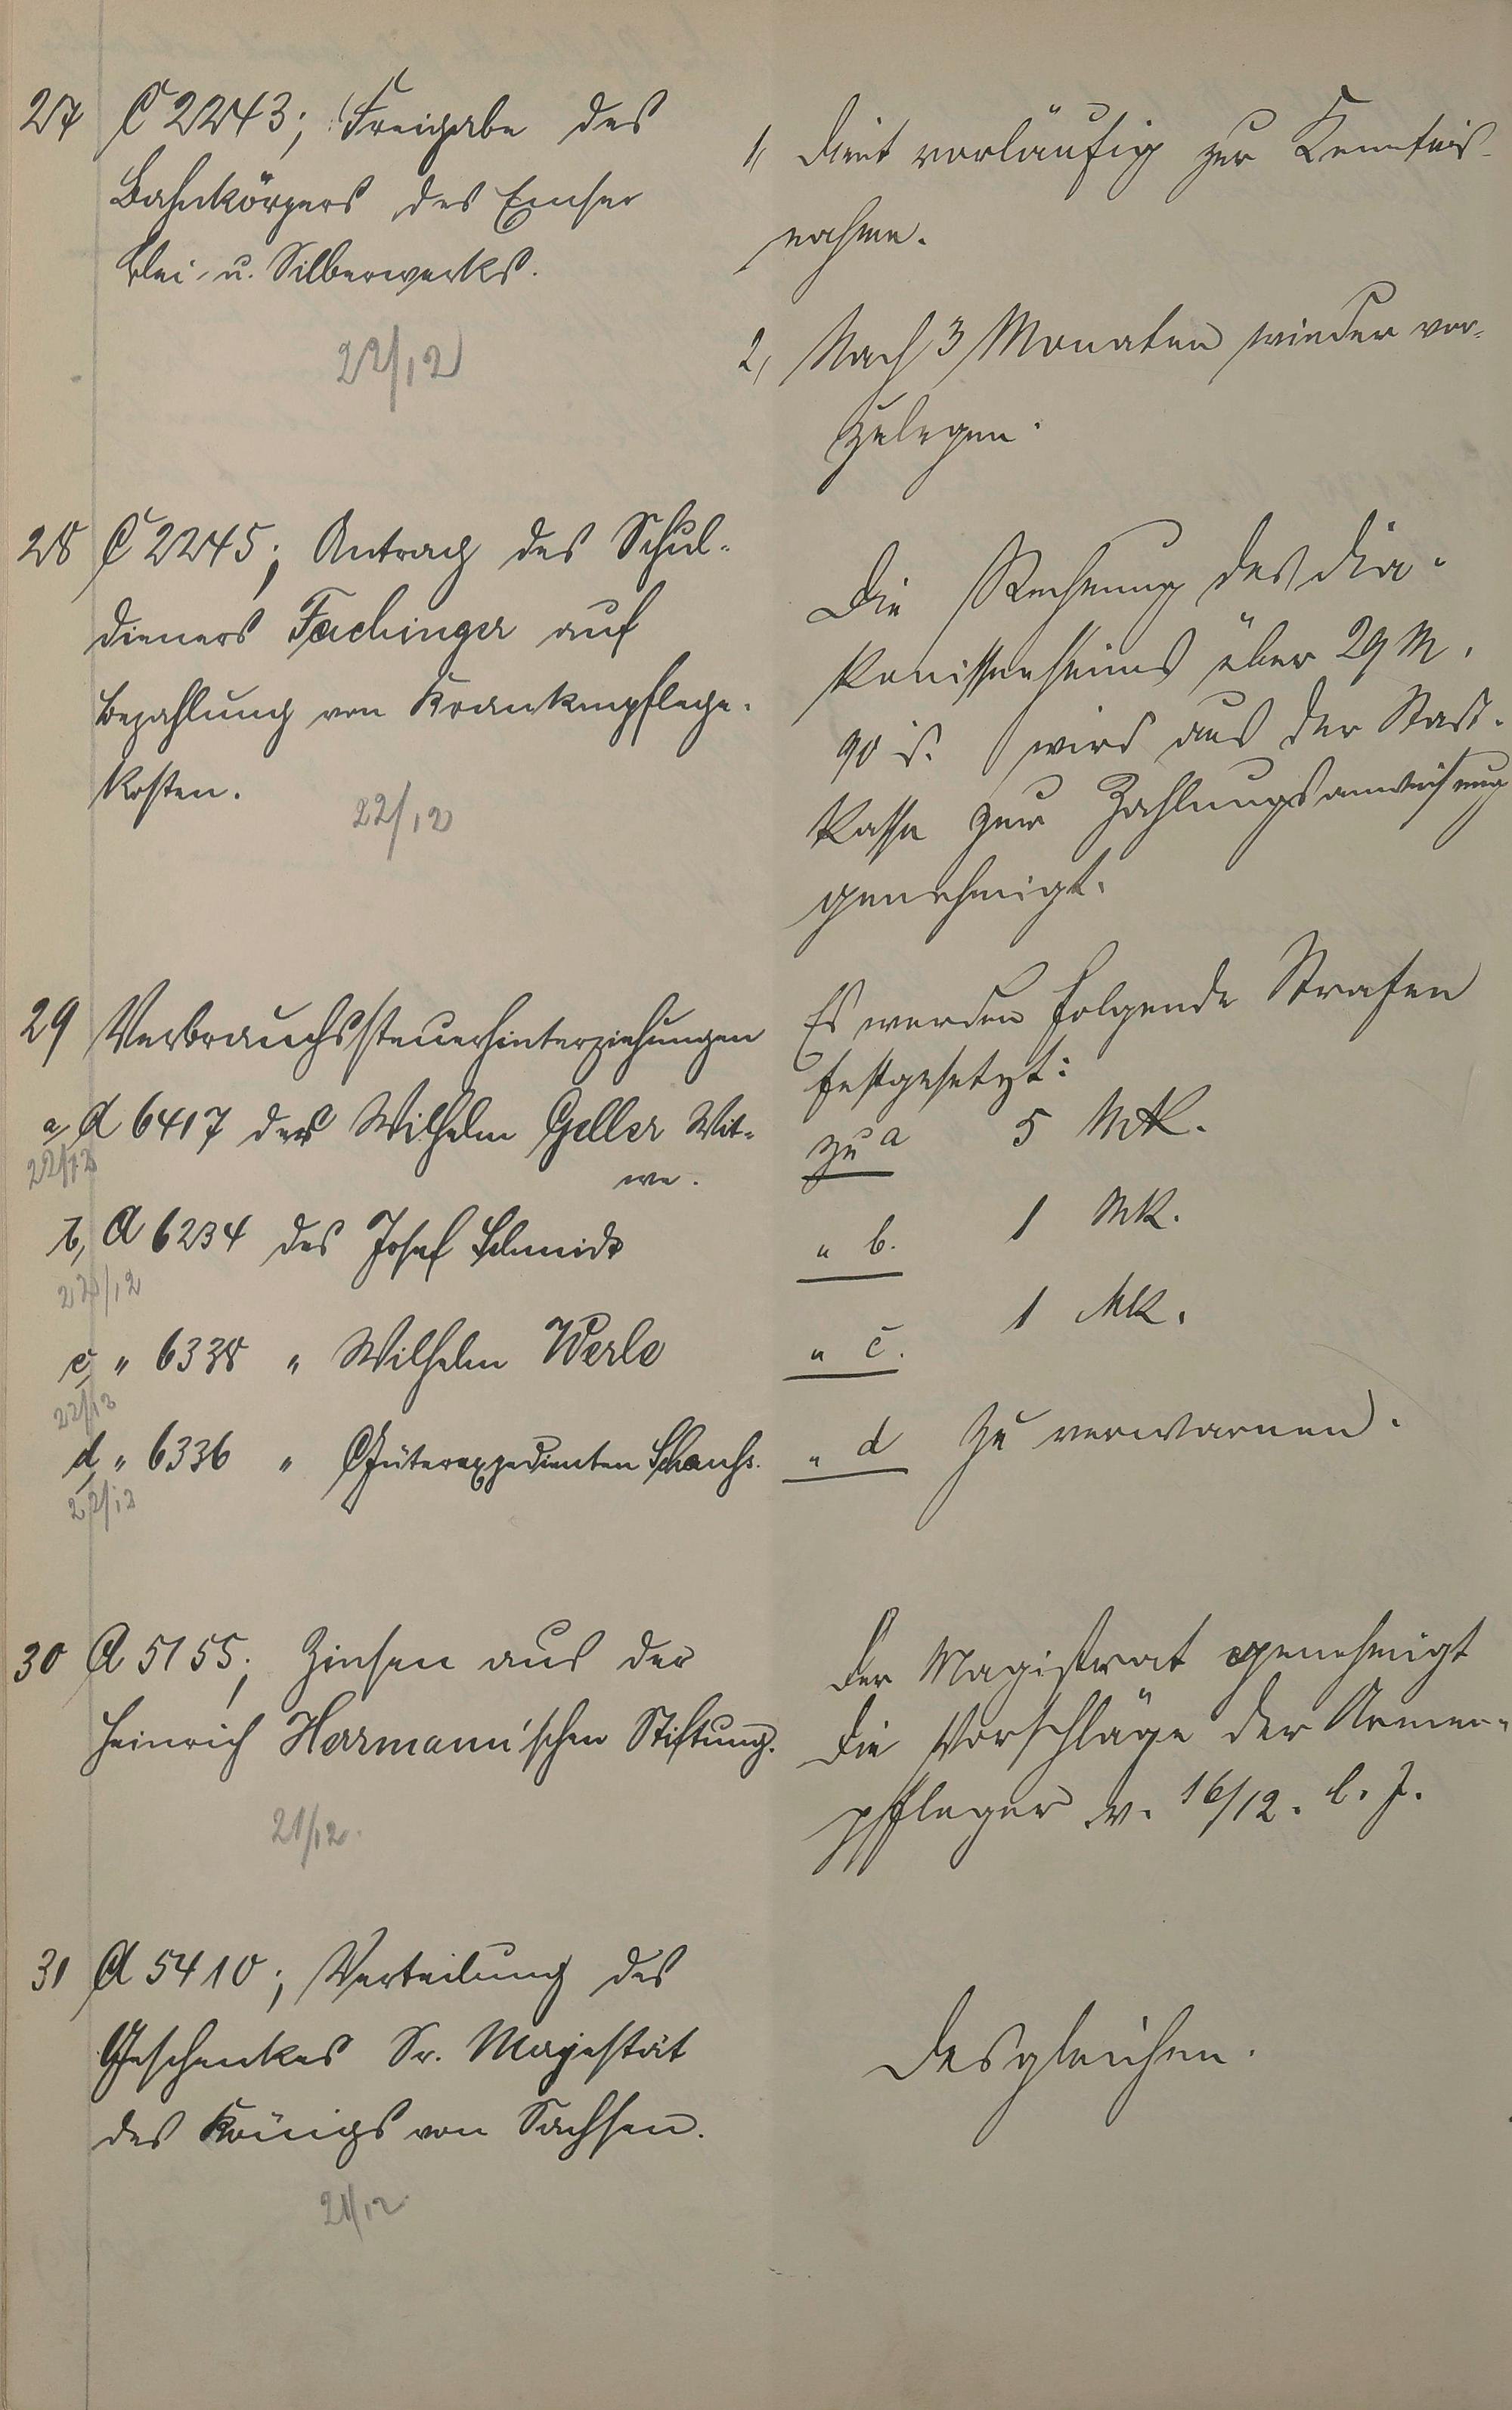 27 C 2243; Freigabe des
Bahnkörpers des Emser
Blei- u. Silberwerks.
22/12
1, Dient vorläufig zur Kenntnis-
nahme.
2, Nach 3 Monaten wieder vor-
zulegen.
28 C 2245; Antrag des Schul-
dieners Fachinger auf
Bezahlung von Krankenpflege-
kosten.
22/12
Die Rechnung des Dia-
konissenheims über 29 M.
90 S. wird aus der Stadt-
kasse zur Zahlungsanweisung
genehmigt.
29 Verbrauchssteuerhinterziehungen
a, A 6417 der Wilhelm Geller Wit-
we.
22/12
b, A 6234 des Josef Schmidt
22/12
c, " 6338 " Wilhelm Werle
22/12
d, " 6336 " Güterexpedienten
22/12
Es werden folgende Strafen
festgesetzt:
zu a 5 Mk.
" b. 1 Mk.
" c. 1 Mk.
" d zu verwarnen.
30 A 5155; Zinsen aus der
Heinrich Herrmann'schen Stiftung.
21/12.
Der Magistrat genehmigt
die Vorschläge der Armen-
pfleger v. 16/12. l. J.
31 A 5410; Verteilung des
Geschenkes Sr. Majestät
des Königs von Sachsen.
21/12
Desgleichen.